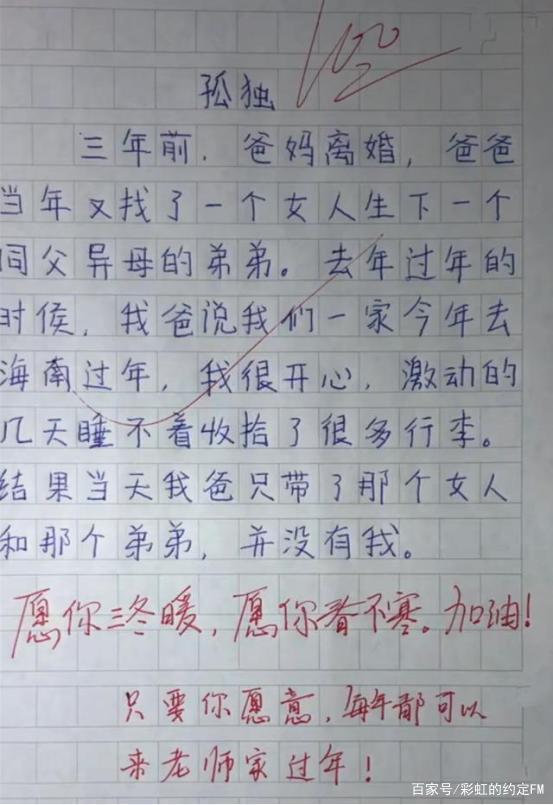 100
孤独
三年前，爸妈离婚，爸爸
当年又找了一个女人生下一个
同父异母的弟弟。去年过年的
时侯，我爸说我们一家今年去
海南过年，我很开心，激动的
几天睡不着收拾了很多行李。
结果当天我爸只带了那个女人
和那个弟弟，并没有我。
愿你三冬暖，愿你春不寒。加油！
只要你愿意，每年都可以
来老师家过年！
百家号/彩虹的约定FM